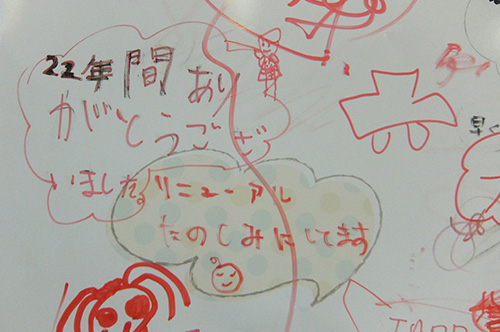 22年間あり
がとうござ
いました。
リニューアル
たのしみにしてます
早く